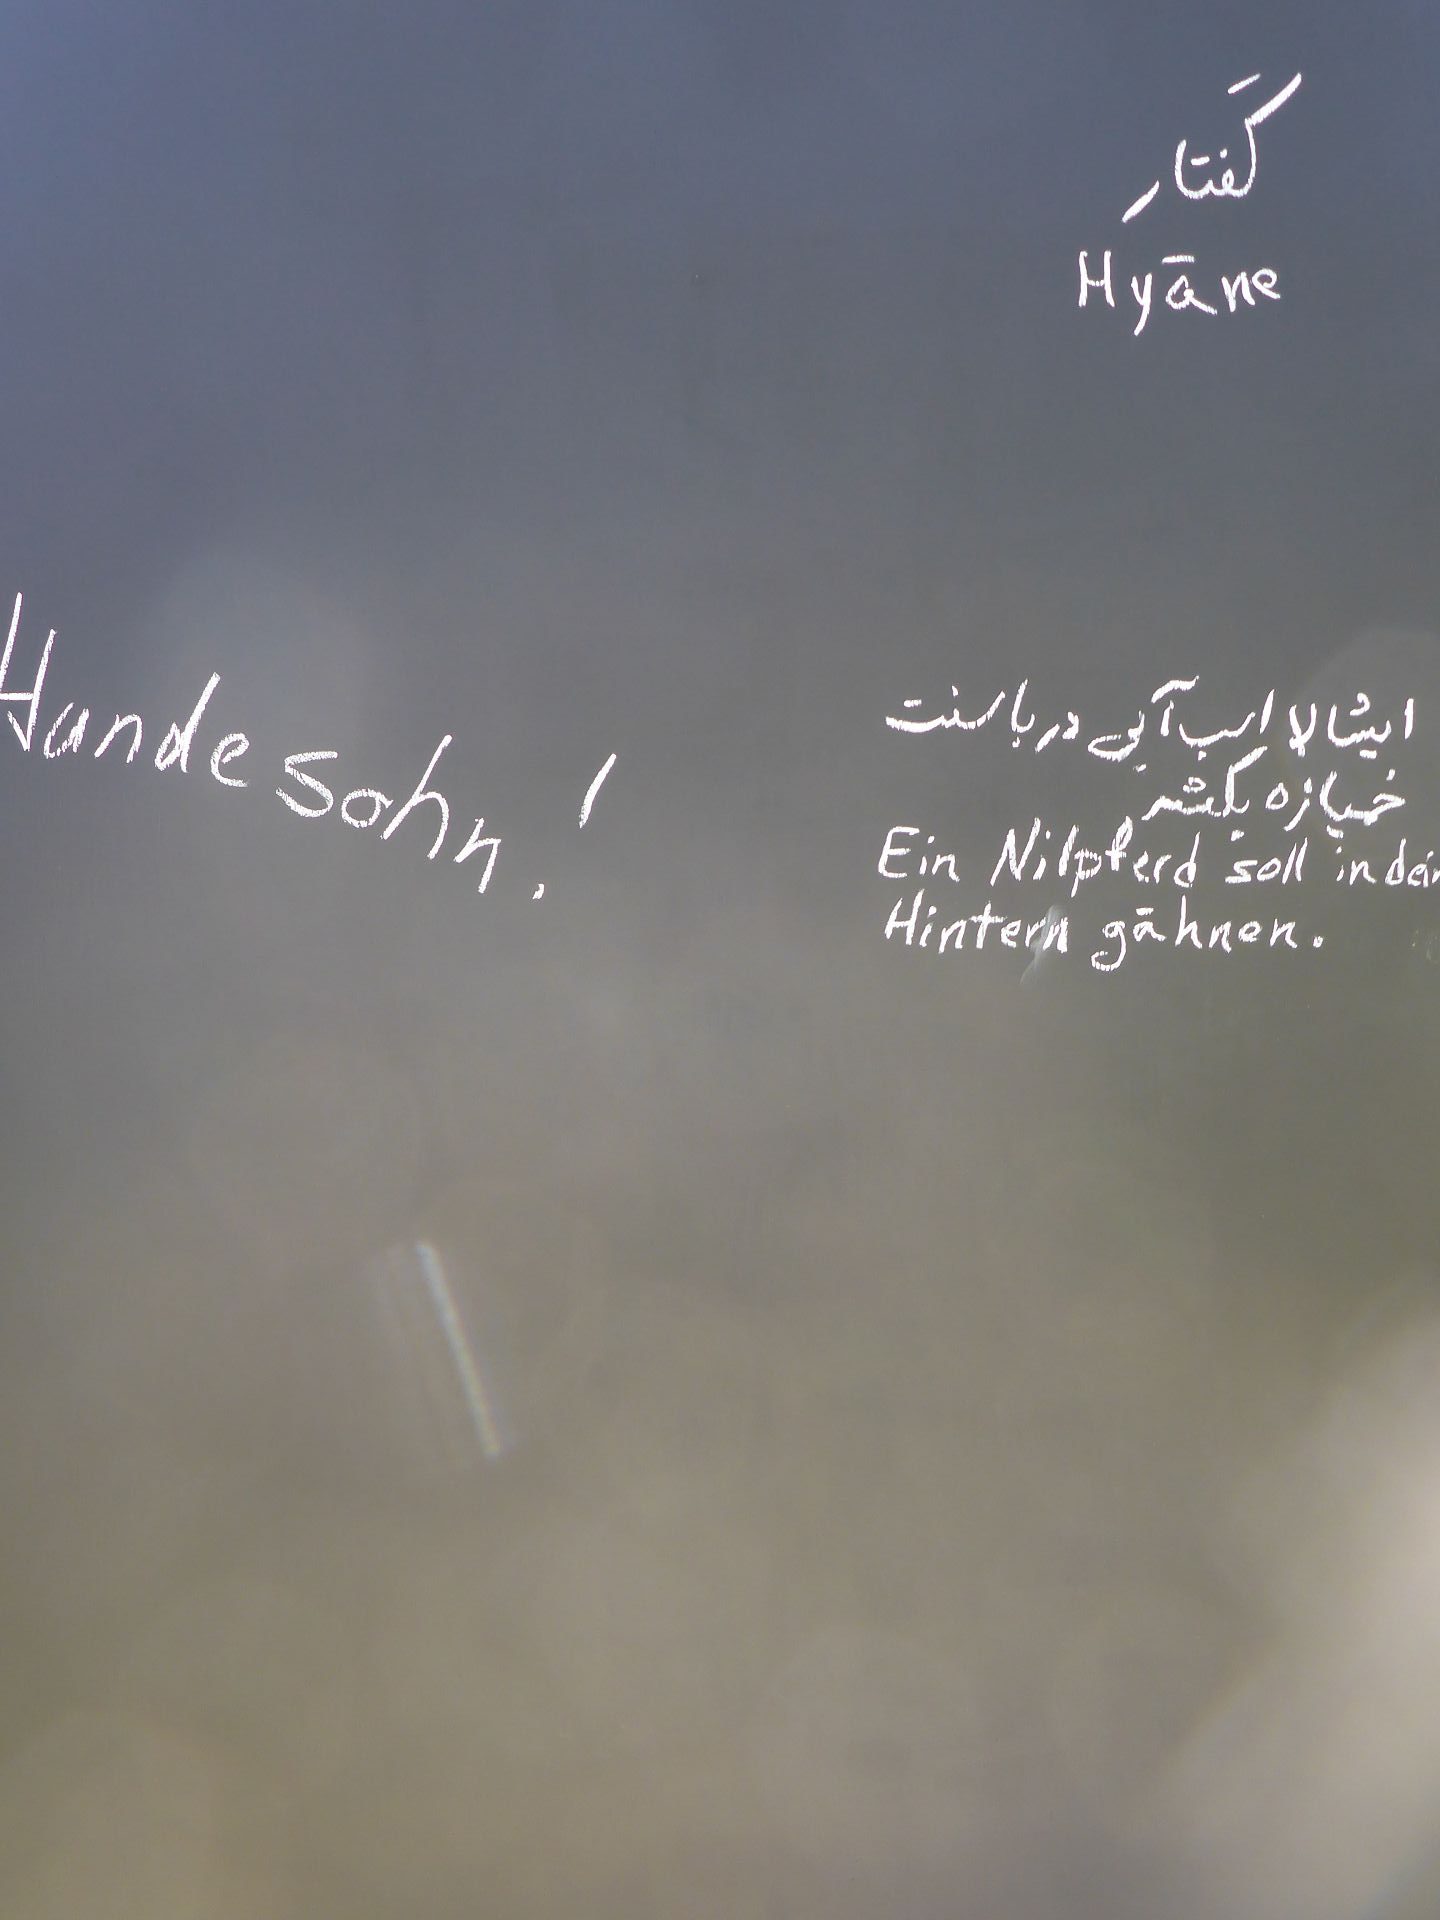 کَفتار
Hyāne
Hundesohn!
ایشالا اسب آبی در باسنت
خمیازه بکشد
Ein Nilpferd soll in dein
Hintern gāhnen.